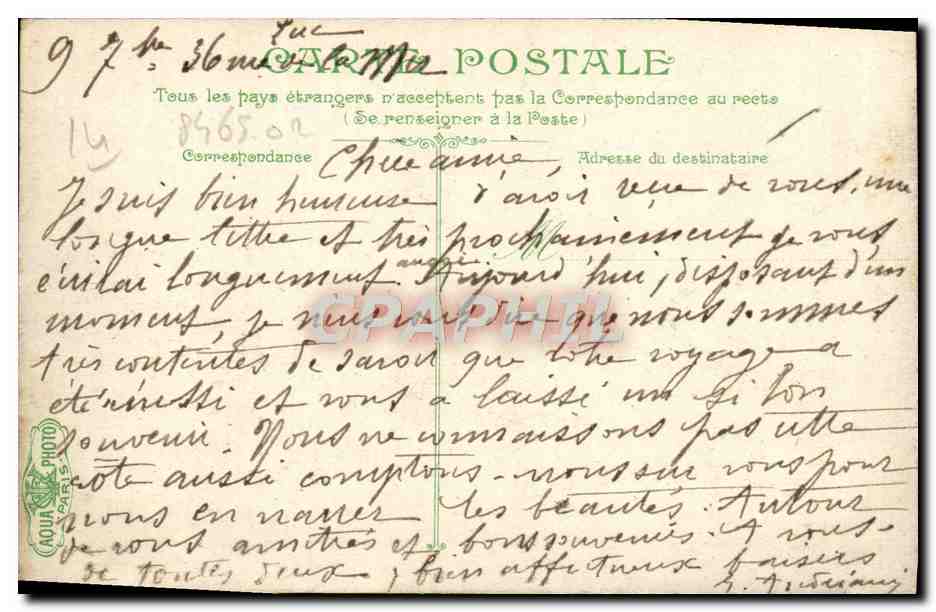 9 7bre 36 Luc s la Mer
CARTE POSTALE
Tous les pays étrangers n'acceptent pas la Correspondance au recto
(Se renseigner à la Poste)
14 8465.02
Correspondance
Adresse du destinataire
Chère amie,
Je suis bien heureuse d'avoir reçue de vous, une
longue lettre et très prochainement je vous
écrirai longuement aussi Aujourd'hui, disposant d'un
moment, je viens vous dire que nous sommes
très contentes de savoir que votre voyage a
été réussi et vous a laissé un si bon
souvenir. Nous ne connaissons pas cette
côte aussi comptons-nous sur vous pour
nous en narrer les beautés. Autour
de vous amitiés et bons souvenirs. A vous
de toutes deux, bien affectueux baisers
M
CPAPHIL
AQUA PHOTO
PARIS